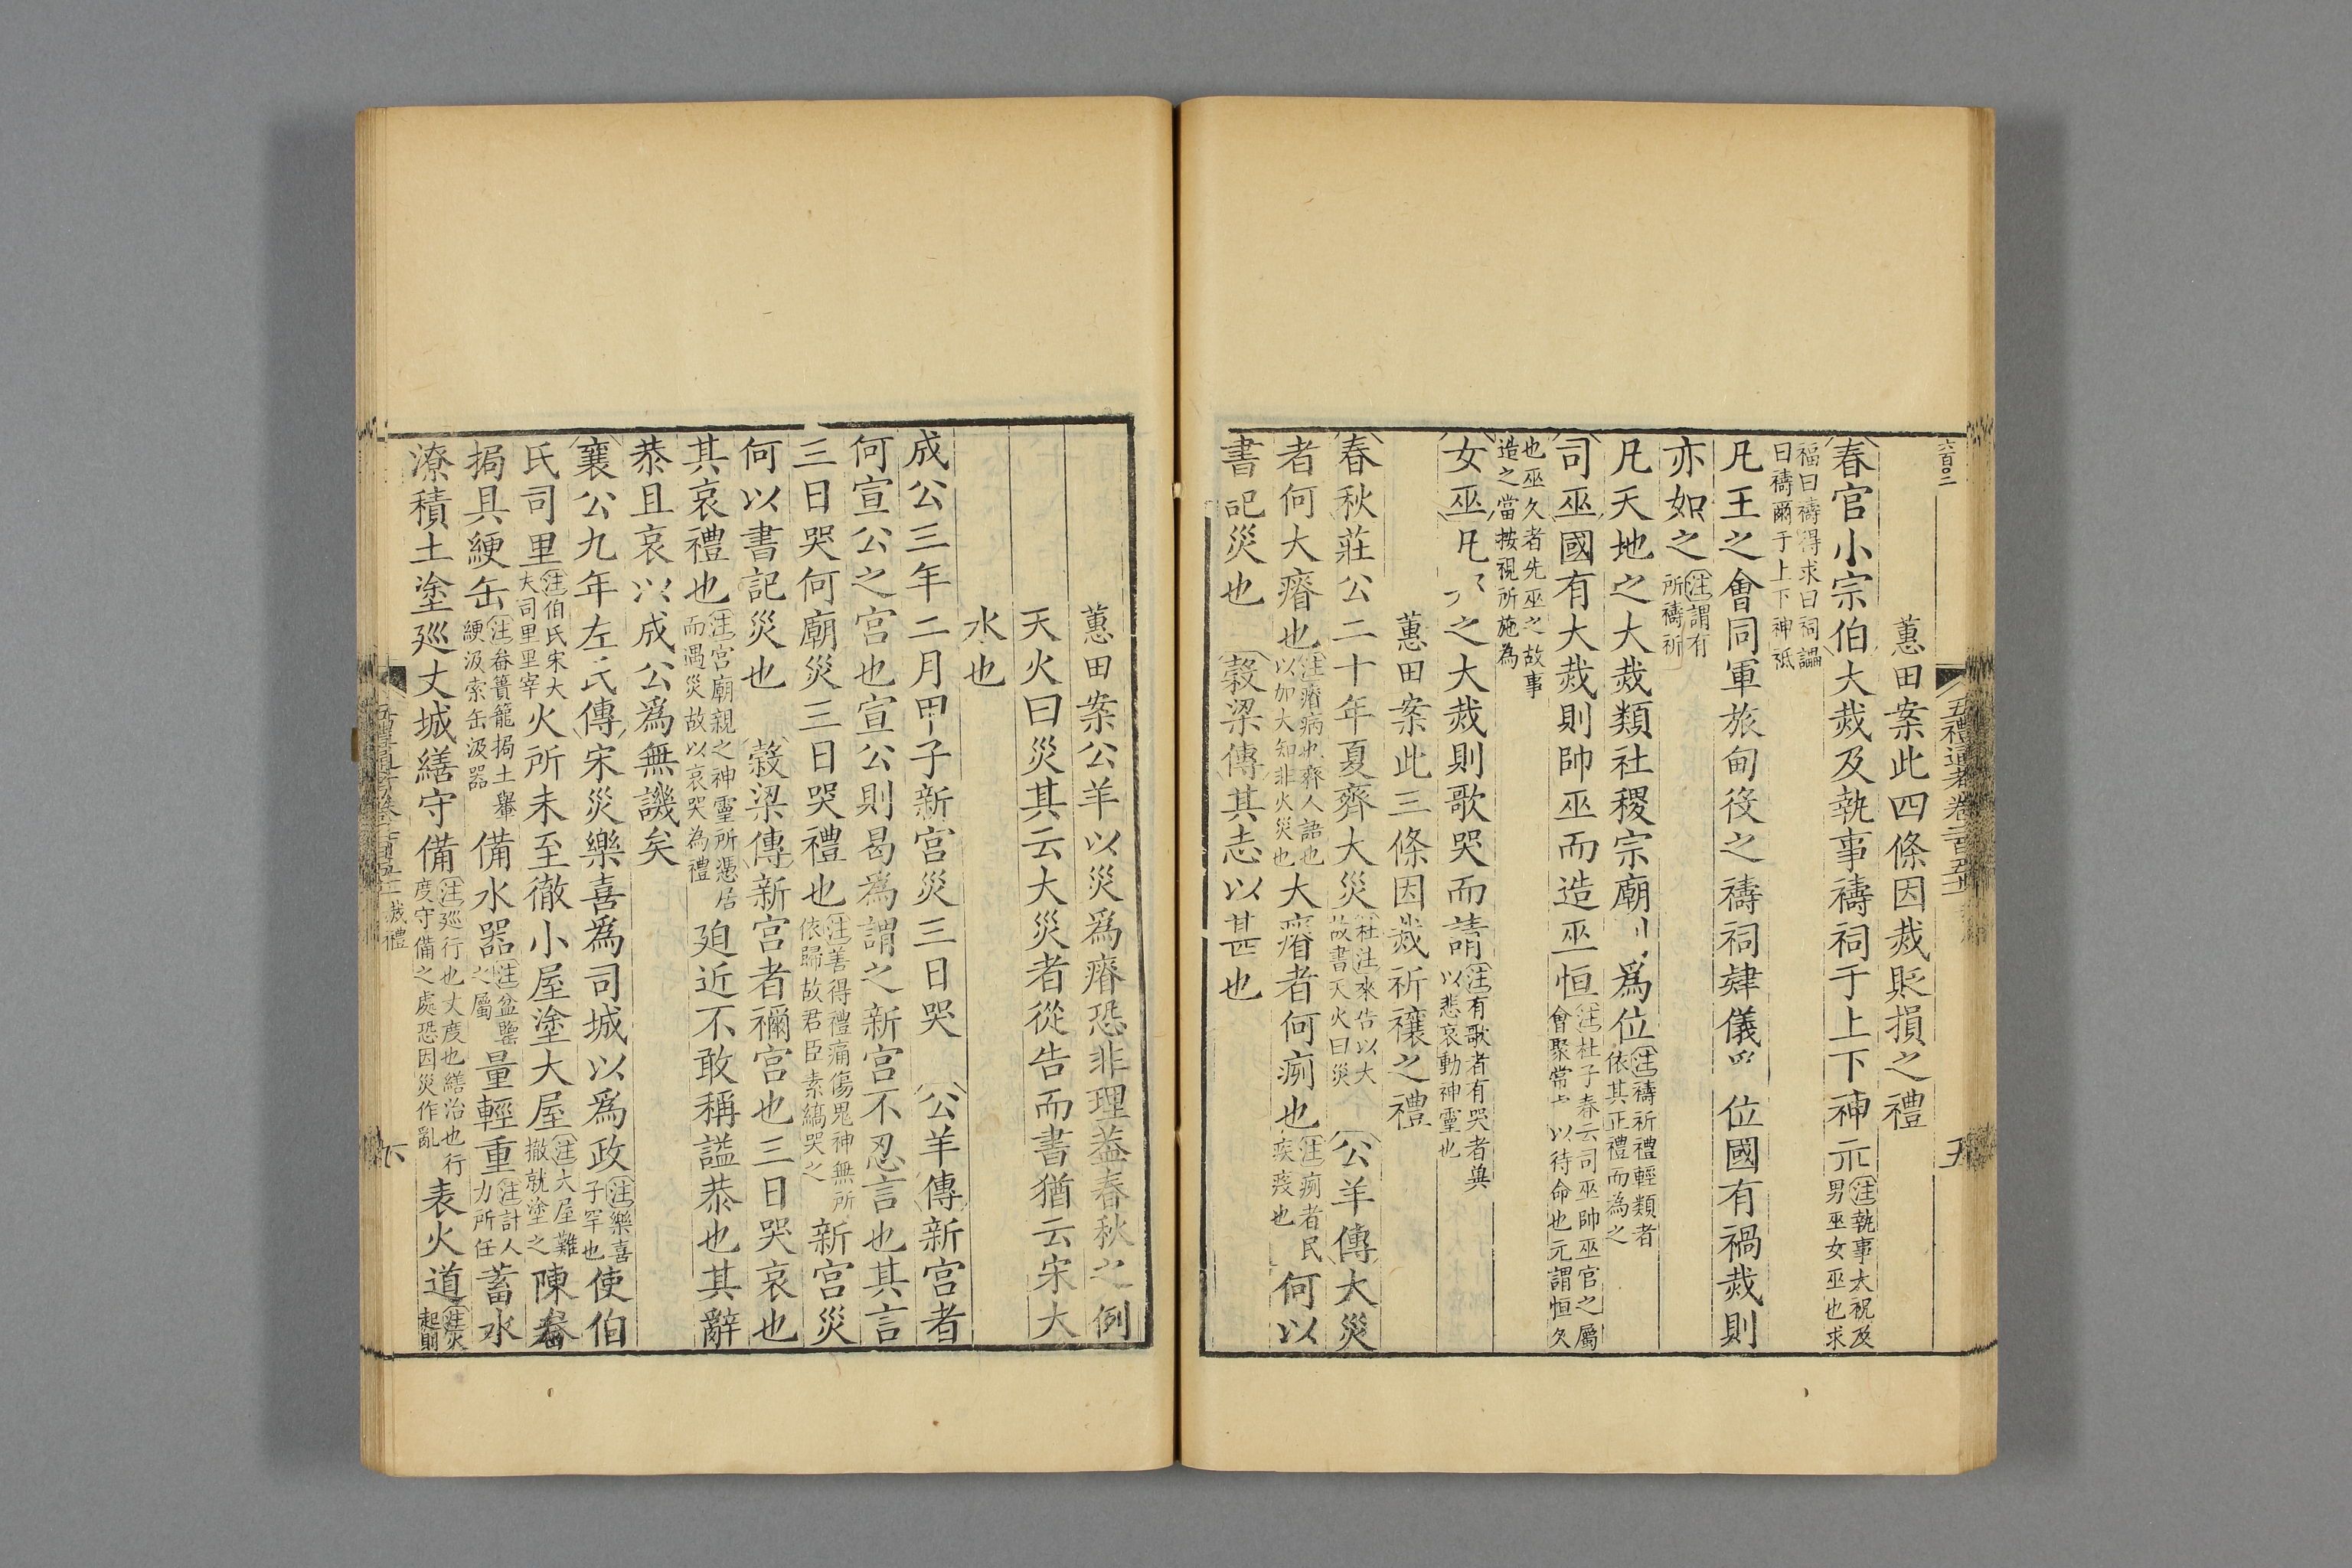 六百〇二
五禮通考卷二百五十二
五
蕙田案此四條因烖貶損之禮
春官小宗伯大烖及執事禱祠于上下神示注執事大祝及男巫女巫也求
福曰禱得求曰祠讄曰禱爾于上下神祗
凡王之會同軍旅甸役之禱祠肄儀 位國有禍烖則
亦如之注謂有所禱祈
凡天地之大烖類社稷宗廟 爲位注禱祈禮輕類者依其正禮而為之
司巫國有大烖則帥巫而造巫恒注杜子春云司巫帥巫官之屬會聚常 以待命也元謂恒久
也巫久者先巫之故事造之當按視所施為
女巫凡 之大烖則歌哭而請注有歌者有哭者兾以悲哀動神靈也
蕙田案此三條因烖祈禳之禮
春秋莊公二十年夏齊大災杜注來告以大故書天火曰災 公羊傳大災
者何大瘠也注瘠病也齊人語也以加大知非火災也大瘠者何㾐也注㾐者民疾疫也何以
書記災也 穀梁傳其志以甚也
蕙田案公羊以災爲瘠恐非理葢春秋之例
天火曰災其云大災者從告而書猶云宋大
水也
成公三年二月甲子新宮災三日哭 公羊傳新宮者
何宣公之宮也宣公則曷爲謂之新宮不忍言也其言
三日哭何廟災三日哭禮也注善得禮痛傷鬼神無所依歸故君臣素縞哭之新宮災
何以書記災也 穀梁傳新宮者禰宮也三日哭哀也
其哀禮也注宮廟親之神靈所憑居而遇災故以哀哭為禮廹近不敢稱謚恭也其辭
恭且哀以成公爲無譏矣
襄公九年左氏傳宋災樂喜爲司城以爲政注樂喜子罕也使伯
氏司里注伯氏宋大夫司里里宰火所未至徹小屋塗大屋注大屋難撤就塗之陳畚
挶具綆缶注畚簣籠挶土轝綆汲索缶汲器備水器注盆鑒之屬量輕重注計人力所任蓄水
潦積土塗廵丈城繕守備注廵行也丈度也繕治也行度守備之處恐因災作亂表火道注火起則
烖禮